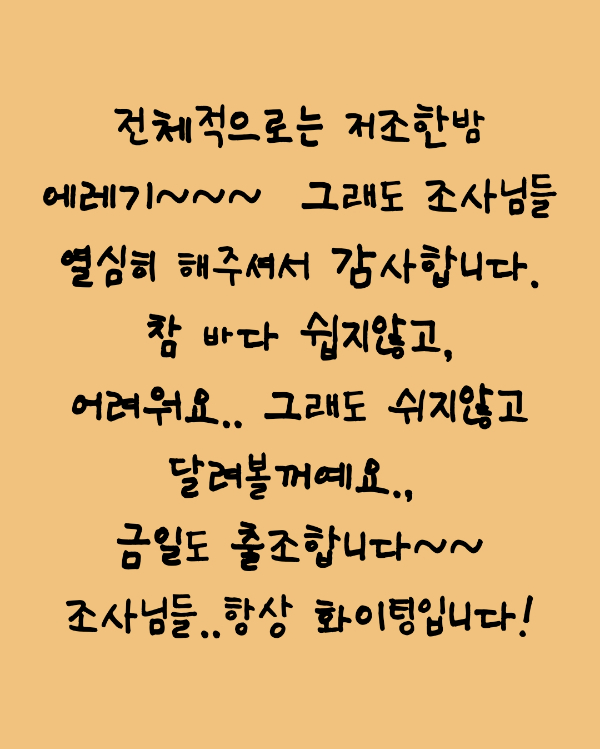 전체적으로는 저조한밤
에레기~~~ 그래도 조사님들
열심히 해주셔서 감사합니다.
참 바다 쉽지않고,
어려워요.. 그래도 쉬지않고
달려볼꺼예요.,
금일도 출조합니다~~
조사님들..항상 화이팅입니다!